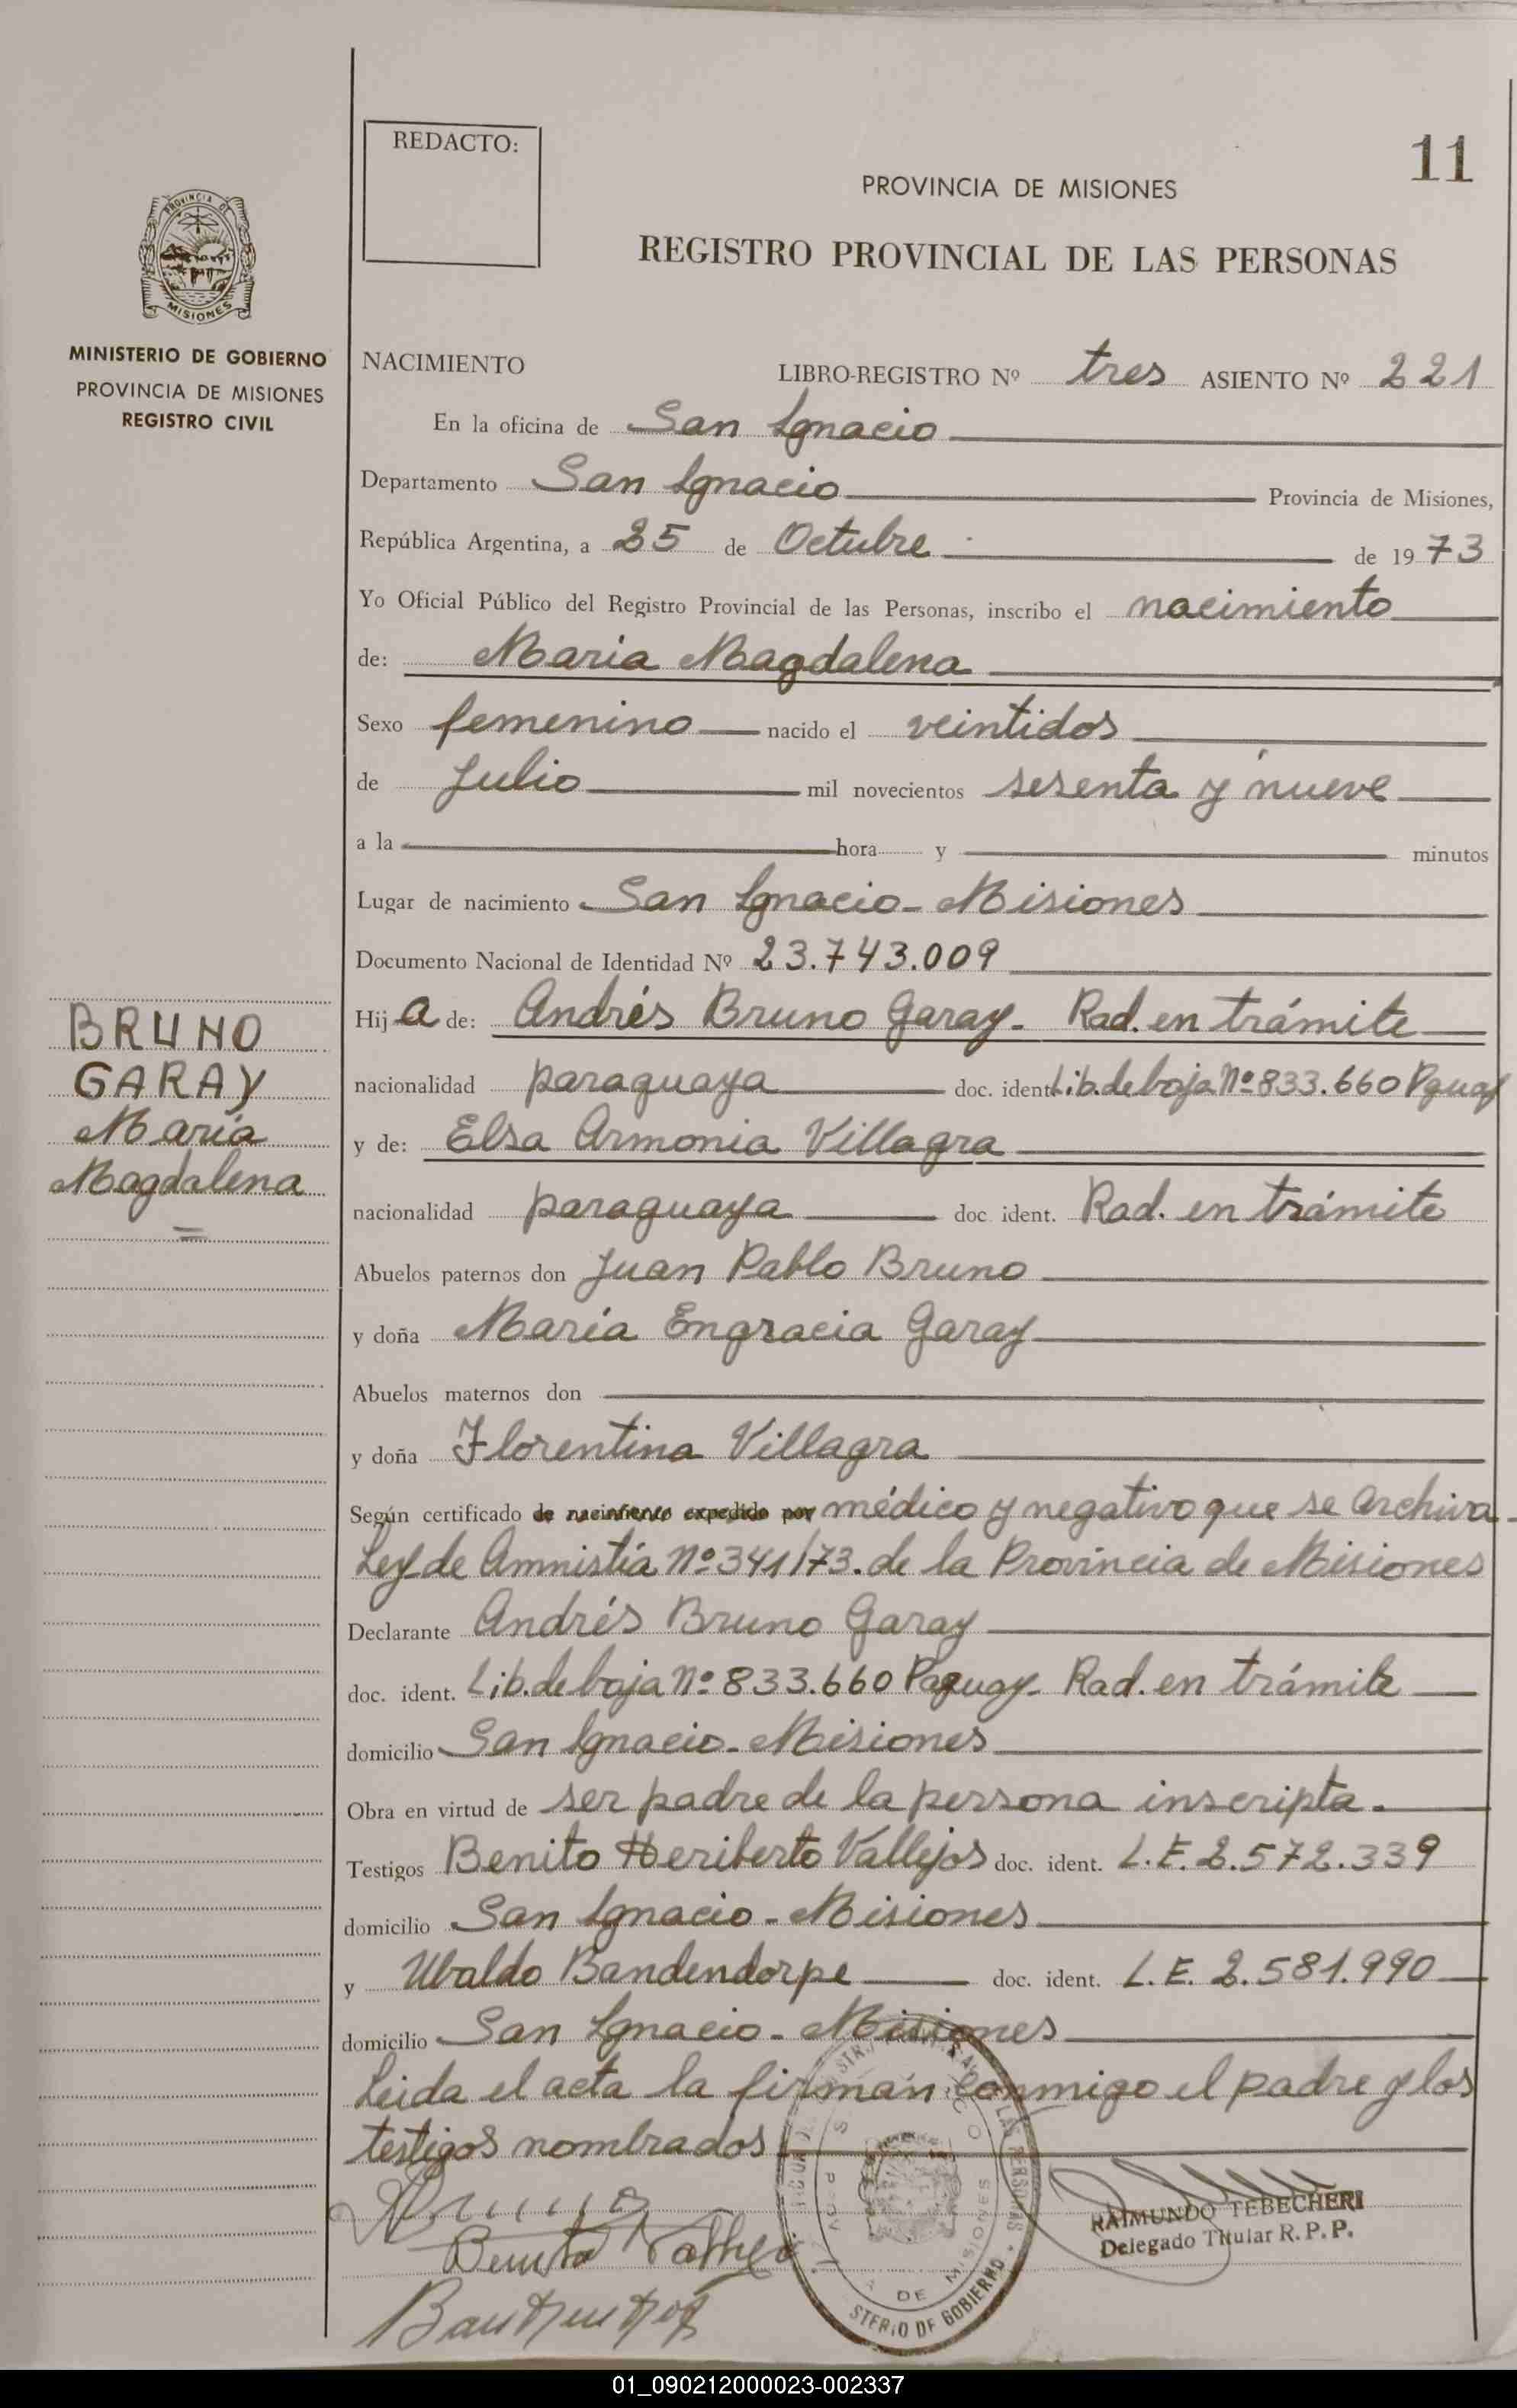 REDACTO:
11
PROVINCIA DE MISIONES
REGISTRO PROVINCIAL DE LAS PERSONAS
PROVINCIA DE
MISIONES
MINISTERIO DE GOBIERNO
PROVINCIA DE MISIONES
REGISTRO CIVIL
NACIMIENTO LIBRO-REGISTRO Nº tres ASIENTO Nº 221
En la oficina de San Ignacio
Departamento San Ignacio Provincia de Misiones,
República Argentina, a 25 de Octubre de 1973
Yo Oficial Público del Registro Provincial de las Personas, inscribo el nacimiento
de: Maria Magdalena
Sexo femenino nacido el veintidos
de Julio mil novecientos sesenta y nueve
a la hora y minutos
Lugar de nacimiento San Ignacio - Misiones
Documento Nacional de Identidad Nº 23.743.009
Hij a de: Andrés Bruno Garay - Rad. en trámite
nacionalidad paraguaya doc. ident. Lib. de baja Nº 833.660 Pguay
y de: Elsa Armonia Villagra
nacionalidad paraguaya doc ident. Rad. en trámite
BRUNO
GARAY
María
Magdalena
Abuelos paternos don Juan Pablo Bruno
y doña María Engracia Garay
Abuelos maternos don
y doña Florentina Villagra
Según certificado de nacimiento expedido por médico y negativo que se archiva -
Ley de Amnistía Nº 341/73. de la Provincia de Misiones
Declarante Andrés Bruno Garay
doc. ident. Lib. de baja Nº 833.660 Paguay - Rad. en trámite
domicilio San Ignacio - Misiones
Obra en virtud de ser padre de la persona inscripta.
Testigos Benito Heriberto Vallejos doc. ident. L.E. 2.572.339
domicilio San Ignacio - Misiones
y Ubaldo Bandendorpe doc. ident. L.E. 2.581.990
domicilio San Ignacio - Misiones
Leida el acta la firman conmigo el padre y los
testigos nombrados
Benito Vallejo
RAIMUNDO TEBECHERI
Delegado Titular R. P. P.
DE MISIONES
STERIO DE GOBIERNO
01_090212000023-002337